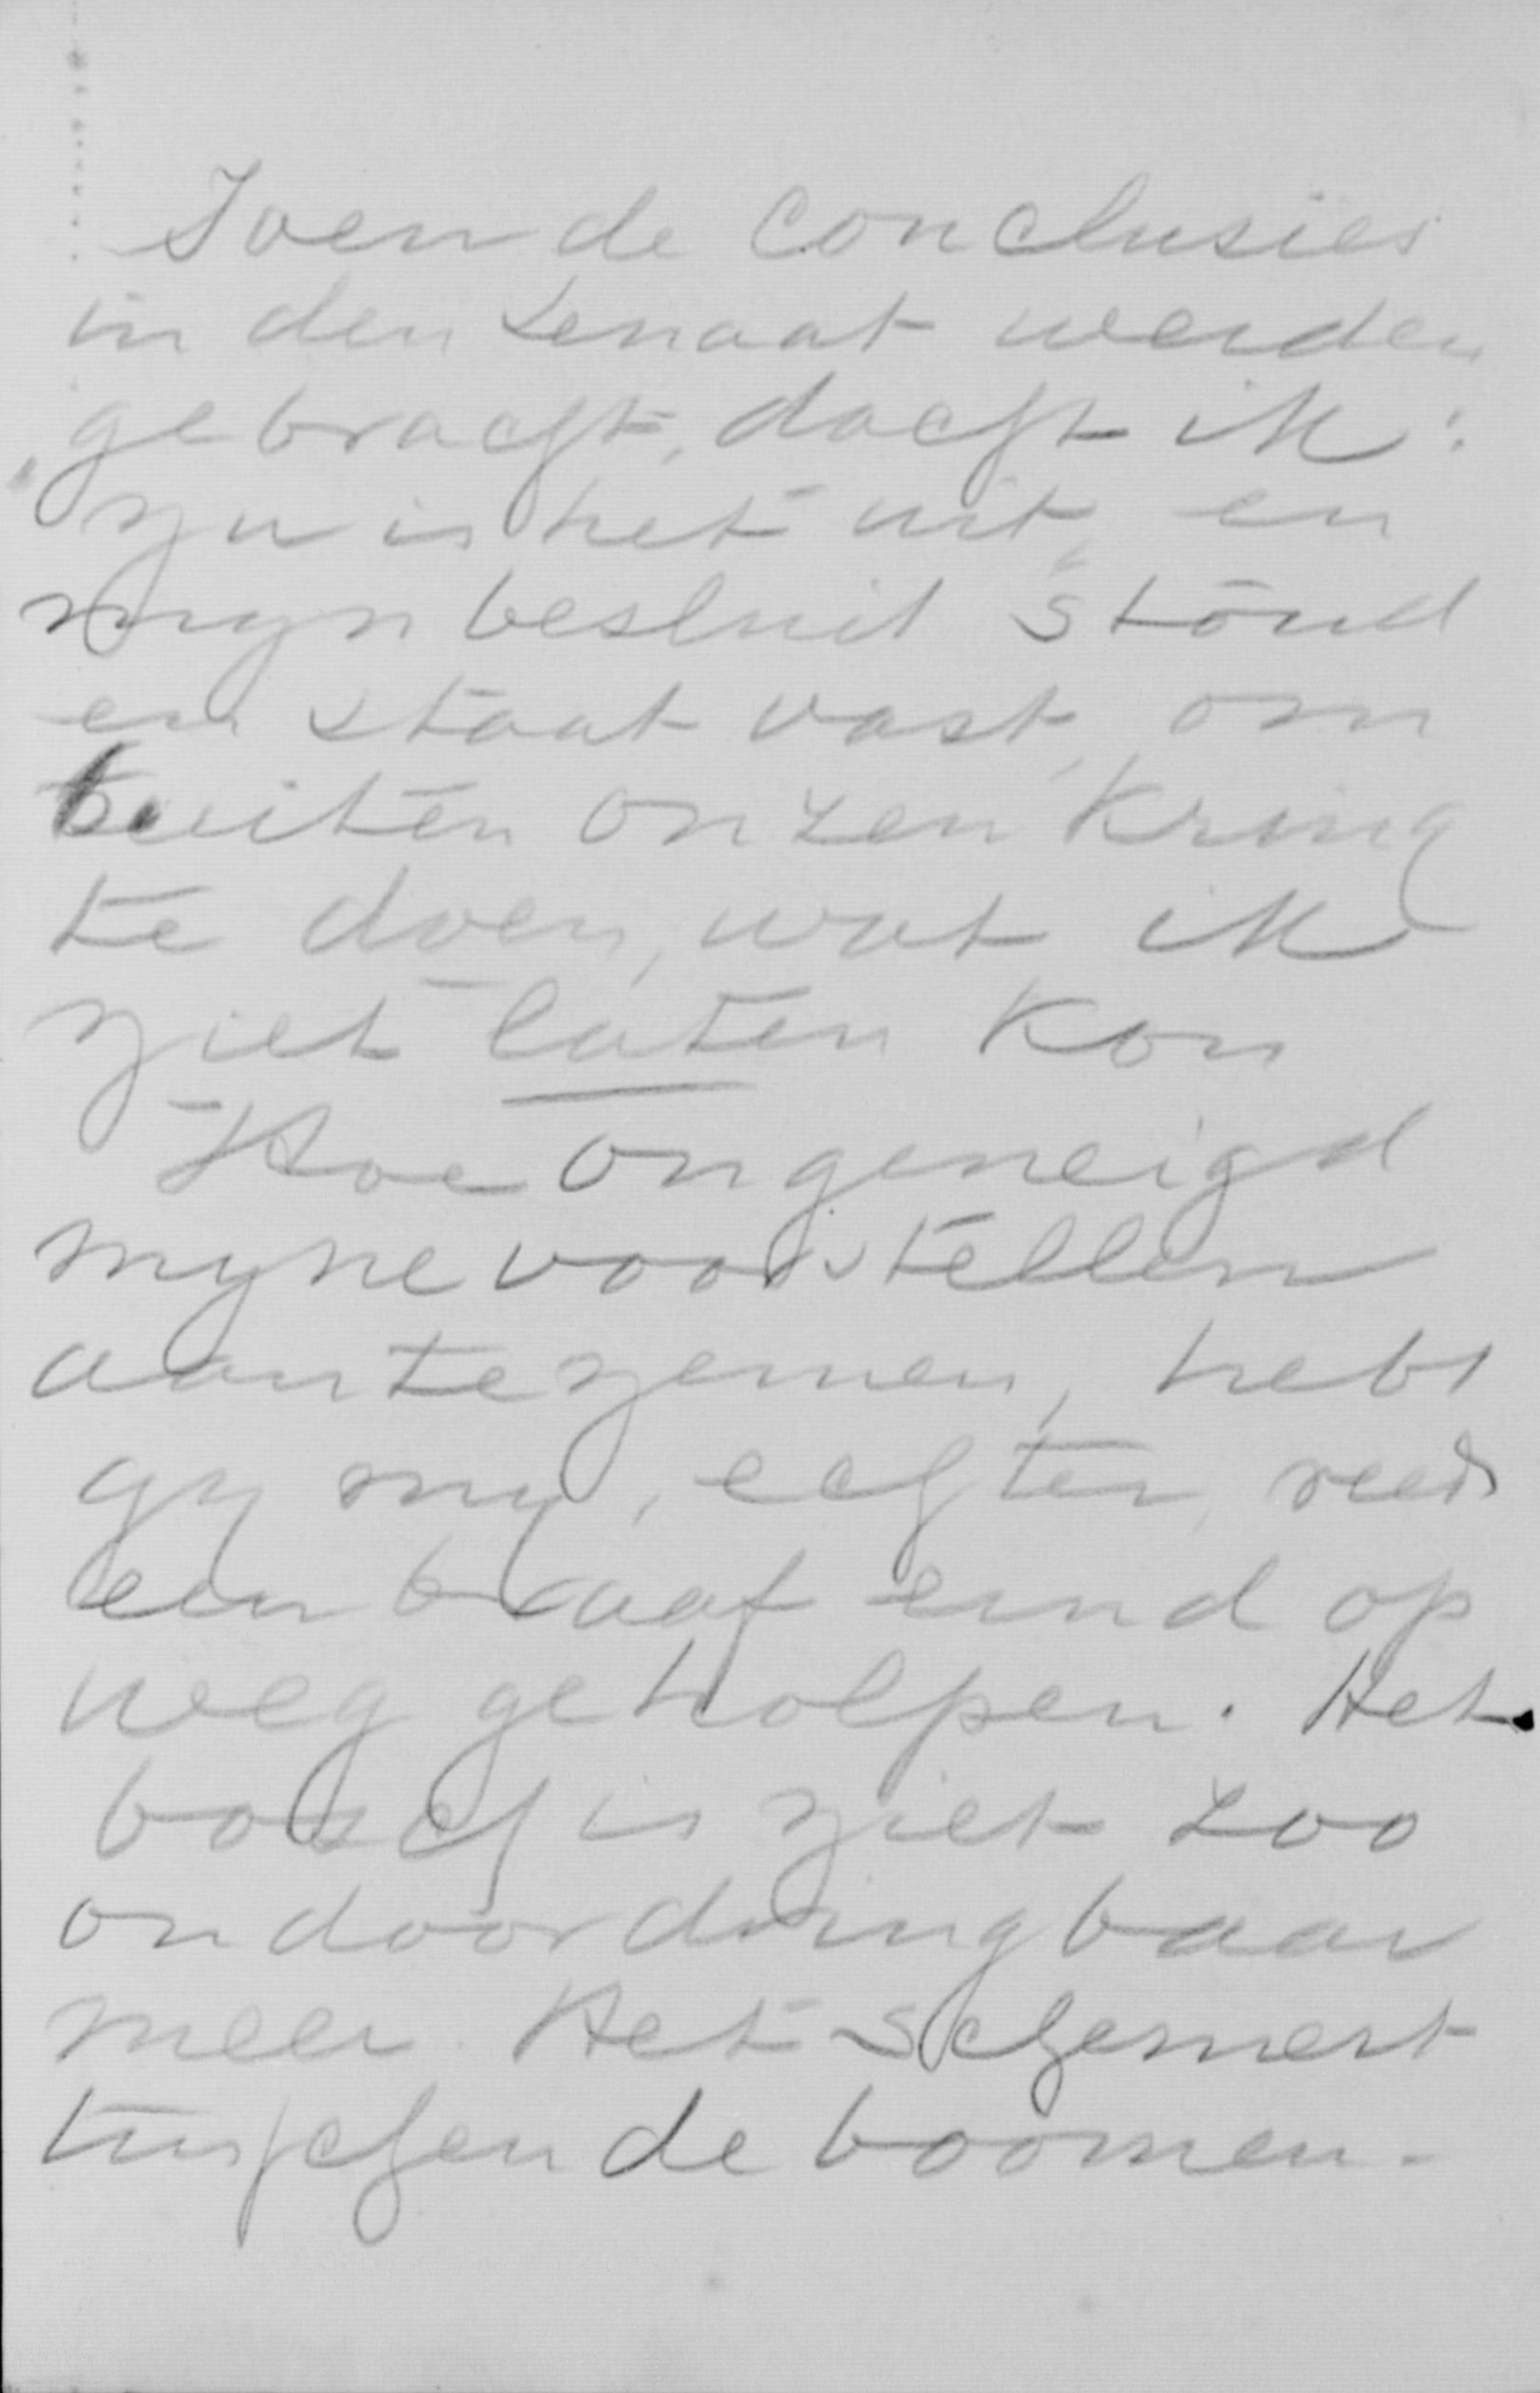 Toen de conclusies
in den Senaat werden
gebracht, dacht ik:
"Nu is het uit" en
mijn besluit stond
en staat vast, om
buiten onzen kring
te doen, wat ik
niet laten kon
Hoe ongeneigd
mijne voorstellen
aantenemen, hebt
gij mij, echter, reeds
een braaf eind op
weg geholpen. Het
bosch is niet zoo
ondoordringbaar
meer. Het schemert
tusschen de boomen.